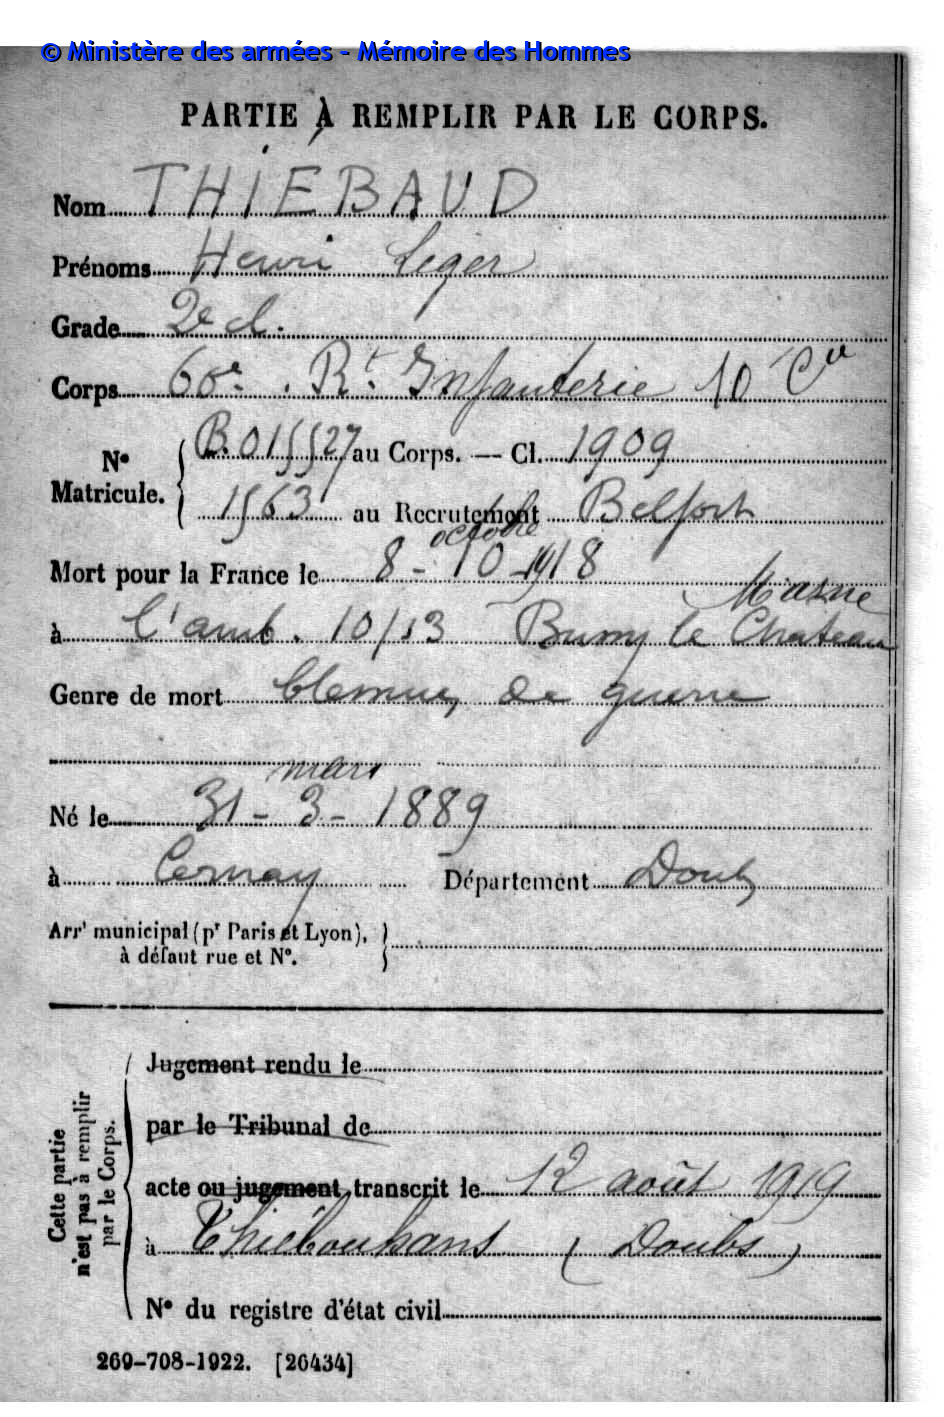 © Ministère des armées - Mémoire des Hommes
PARTIE À REMPLIR PAR LE CORPS.
Nom THIÉBAUD
Prénoms Henri Leger
Grade 2e cl.
Corps 60e. Rt. Infanterie 10 Cie
N° Matricule. B.015527 au Corps. — Cl. 1909
1563 au Recrutement Belfort
octobre
Mort pour la France le 8 - 10 - 1918
Marne
à l'amb. 10/13 Bussy le Chateau
Genre de mort blessures de guerre
mars
Né le 31 - 3 - 1889
à Cernay Département Doubs
Arrt municipal (pr Paris et Lyon),
à défaut rue et N°.
Cette partie
n'est pas à remplir
par le Corps.
Jugement rendu le
par le Tribunal de
acte ou jugement transcrit le 12 août 1919
à Thiébouhans (Doubs)
N° du registre d'état civil
269-708-1922. [26434]